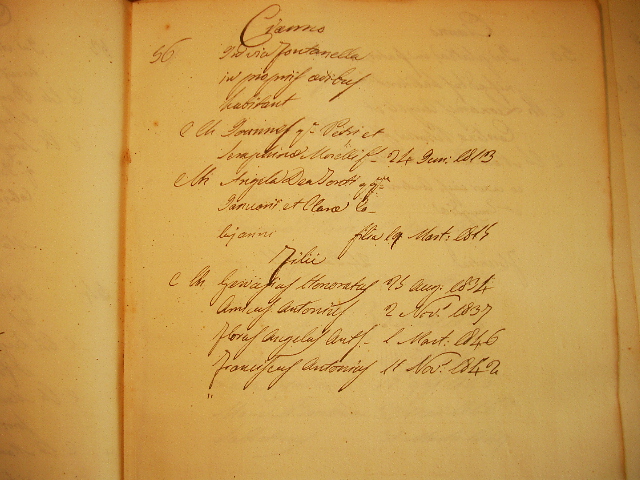 Cianno
56 In via Fontanella
in propriis ædibus
habitant
C Ch Joannes q.m Petri et
Seraphinæ Morelli f.s 24 Jun: 1813
C Ch Angela De
Januarii et Claræ Ca-
filia 19 Mart: 1814
Filii
C Ch Gervasius Honoratus 25 Aug: 1834
Amicus Antonius 2 Nov: 1837
Florus Angelus Ant.s 1 Mart: 1846
Franciscus Antonius 11 Nov: 1842
"